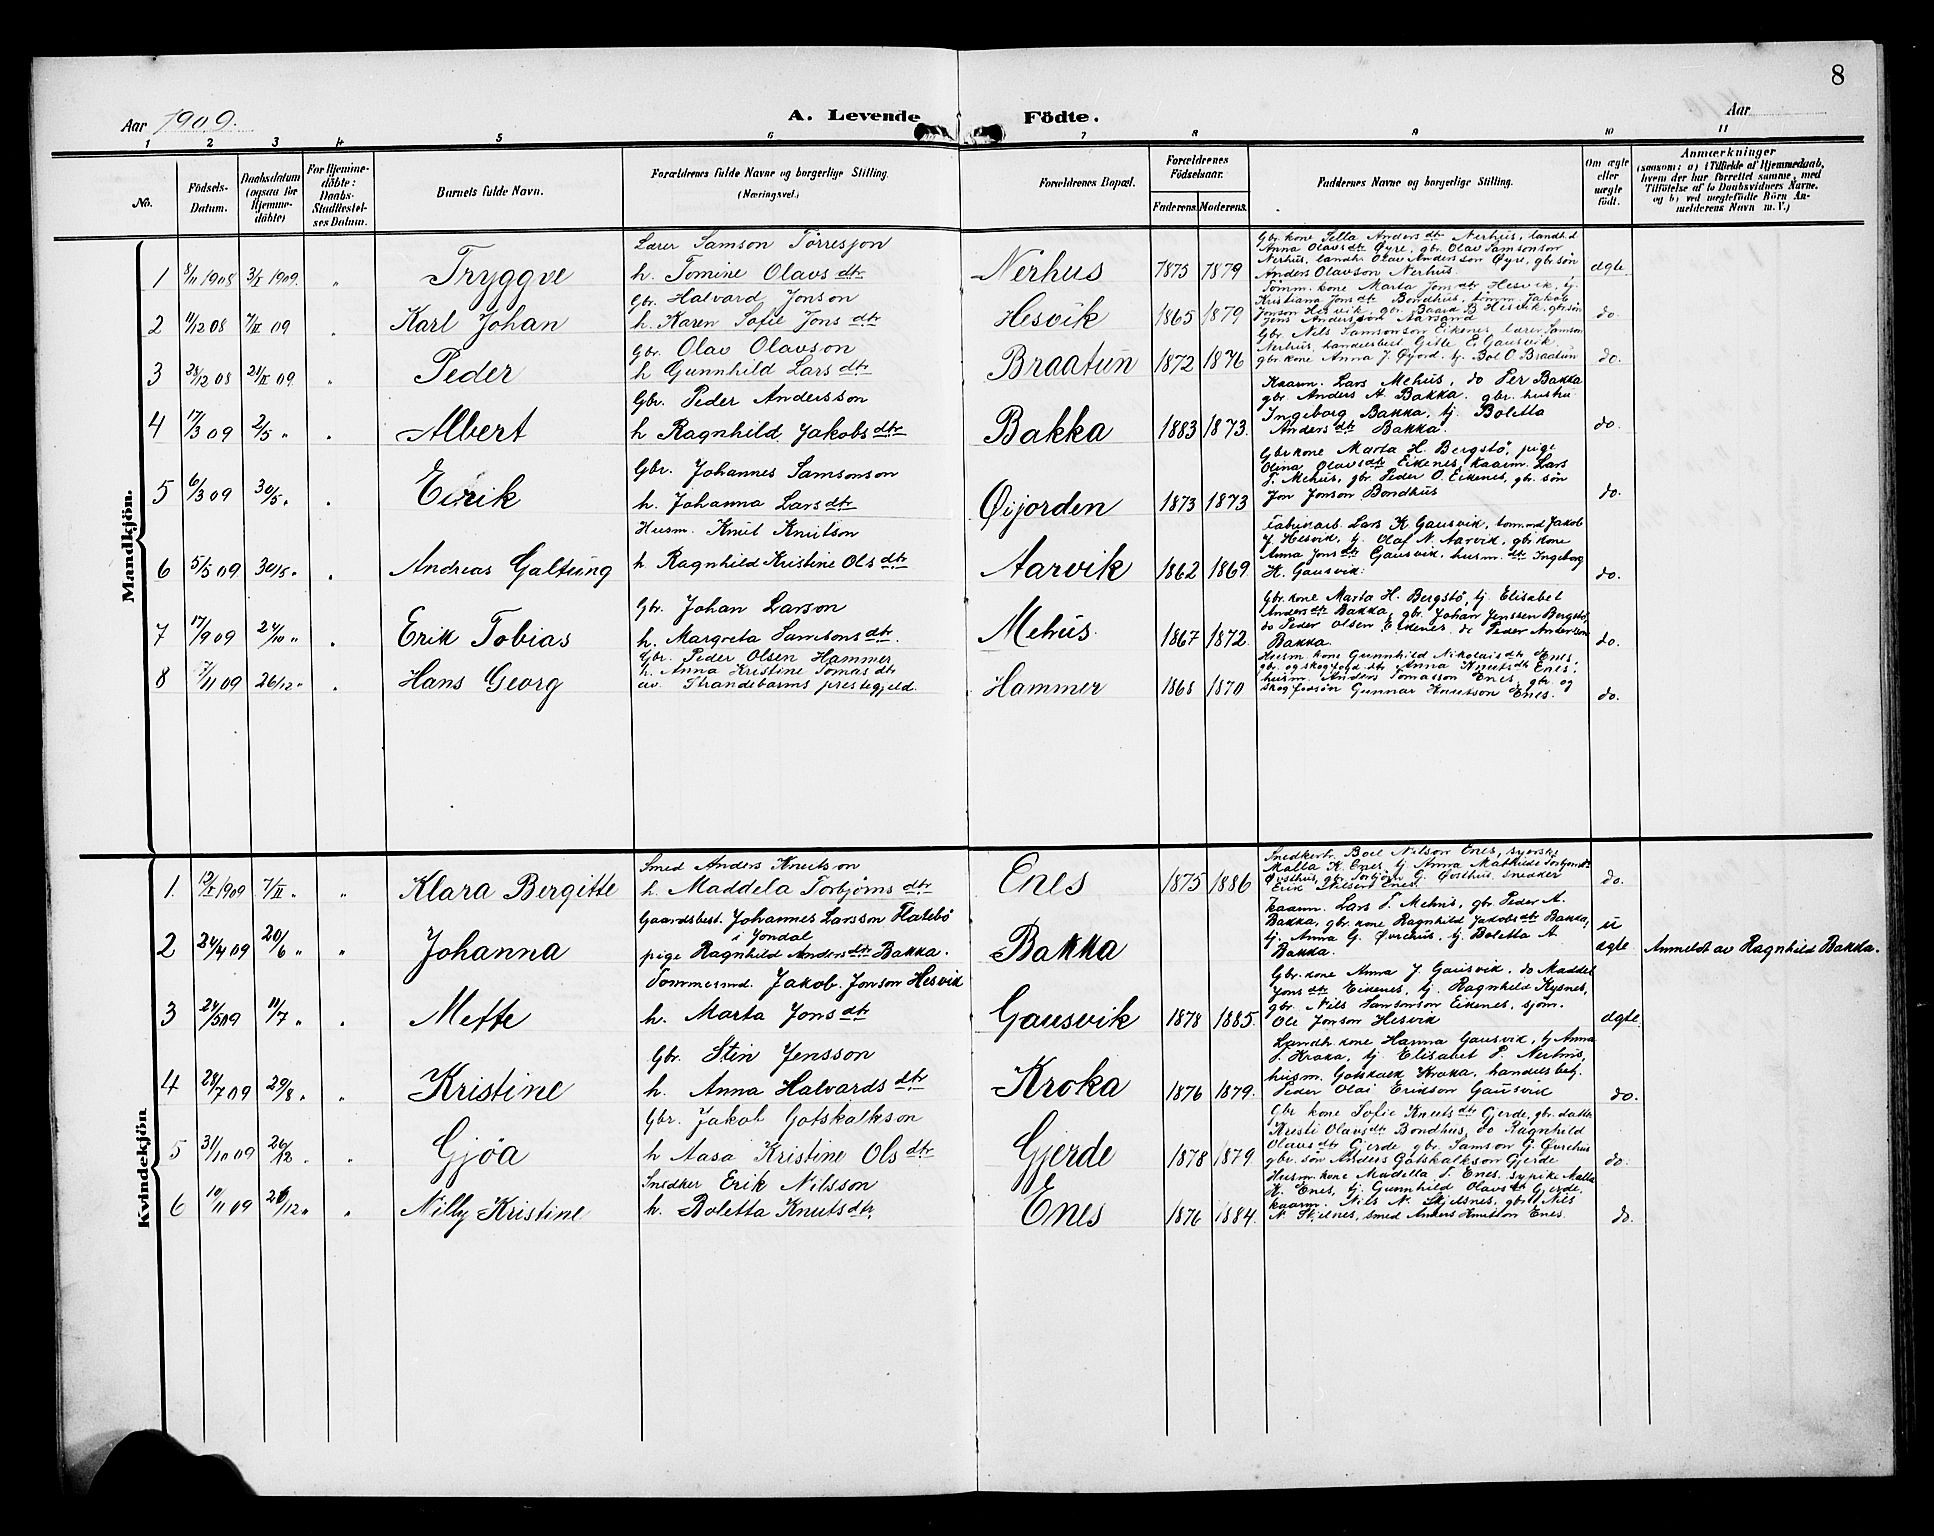 8
Aar 1909. A. Levende Födte. Aar
1 2 3 4 5 6 7 8 9 10 11
No.
Födsels-Datum.
Daabsdatum (ogsaa for Hjemmedöbte)
For Hjemmedöbte: Daabs-Stadfæstelses Datum.
Barnets fulde Navn.
Forældrenes fulde Navne og borgerlige Stilling.
(Næringsvei.)
Forældrenes Bopæl.
Forældrenes Födselsaar.
Faderens. Moderens.
Faddernes Navne og borgerlige Stilling.
Om ægte eller uægte födt.
Anmærkninger
(saasom: a) i Tilfælde af Hjemmedaab, hvem der har forrettet samme, med Tilföielse af to Daabsvidners Navne. og b) ved uægtefödte Börn Anmelderens Navn m. V.)
Mandkjön.
1 8/11 1908 3/I 1909. " Tryggve
Lærer Samson Tørresson
h. Tomine Olavsdtr
Nerhus 1875 1879
Gbr. kone Sella Andersdtr Nerhus, landh.d
Anna Olavsdtr Øyre, gbr Olav Samsonson
Nerhus, landh. Olav Andersson Øyre, gbr søn
Anders Olavson Nerhus.
ægte
2 11/12 08 7/II 09 " Karl Johan
Gbr. Halvard Jonson
h. Karen Sofie Jonsdtr
Hesvik 1865 1879
Tömm. kone Marta Jonsdtr Hesvik, tj.
Kristiana Jonsdtr Bondhus, tömm Jakob
Jonson Hesvik, gbr. Baard B. Hesvik, gbr søn
Jens Andersson Aarsand
do.
3 28/12 08 21/II 09. " Peder
Gbr. Olav Olavson
h Gunnhild Larsdtr
Braatun 1872 1876
Gbr. Nils Samsonson Eikenes, lærer Samson
Nerhus, handelsbest Gitle E. Gausvik
gbr kone Anna J Øyord. tj. Bol O. Braatun
do.
4 17/3 09 2/5 " " Albert
Gbr. Peder Andersson
h Ragnhild Jakobsdtr
Bakka 1883 1873.
Kaarm. Lars Mehus, do Per Bakka
gbr. Anders A. Bakka. gbr. hustru
Ingeborg Bakka, tj. Boletta
Andersdtr Bakka.
do.
5 6/3 09 30/5 " " Eirik
Gbr. Johannes Samsonson
h. Johanna Larsdtr
Øijorden 1873 1873
Gbr kone Marta H. Bergstö, pige
Olina Olavsdtr Eikenes, kaarm. Lars
T. Mehus, gbr. Peder O. Eikenes, gbr. søn
Jon Jonson Bondhus
do.
6 5/5 09 30/5 " " Andreas Galtung
Husm. Knut Knutson
h. Ragnhild Kristine Olsdtr
Aarvik 1862 1869.
Fabrikarb. Lars K Gausvik, tömmd Jakob
J. Hesvik, tj. Olaf N. Aarvik, gbr kone
Anna Jonsdtr Gausvik, husm. dtr Ingeborg
H. Gausvik.
do.
7 17/9 09 24/10 " " Erik Tobias
Gbr. Johan Larson
h. Margreta Samsonsdtr.
Mehus. 1867 1872.
Gbr. kone Marta H. Bergstö, tj Elisabet
Andersdtr Bakka, gbr. Johan Jenssen Bergstö,
do Peder Olsen Eikenes, do Peder Andersen
Bakka
do.
8 7/11 09 26/12 " " Hans Georg
Gbr. Peder Olsen Hammer
h. Anna Kristine Tomasdtr
av. Strandebarms prestegjeld.
Hammer 1868 1870
Husm. kone Gunnhild Nikolaisdtr Enes,
gbr. og skogfogd. dtr Anna Knutsdtr Enes,
husm. Anders Tomasson Enes, gbr og
skogf.søn Gunnar Knutson Enes.
do.
Kvindekjön
1. 12/I 1909 7/II " " Klara Bergitte
Smed Anders Knutson
h. Maddela Torbjörnsdtr
Enes 1875 1886
Snedkerh. Boel Nilson Enes, syerske
Malla K. Enes, tj Anna Mathilde Torbjørnsdtr
Østhus, gbr. Torbjörn G. Østhus, snedker
Erik Nilsen Enes.
do.
2 24/4 09 20/6 " " Johanna
Gaardsbest. Johannes Larsson Flatebö
i Jondal
pige Ragnhild Andersdtr Bakka.
Bakka
Kaarm. Lars T. Mehus, gbr. Peder A.
Bakka, gbr. kone Ragnhild Jakobsdtr Bakka,
tj. Anna G. Øvrehus, tj. Boletta A
Bakka.
u
ægte Anmeldt av Ragnhild Bakka.
3 24/5 09 11/7 " " Mette
Tömmermd. Jakob Jonson Hesvik
h. Marta Jonsdtr
Gausvik 1878 1885.
Gbr. kone Anna J. Gausvik, do Maddel
Jonsdtr Eikenes, tj. Ragnhild Kysnes,
gbr. Nils Samsonson Eikenes, sjøm.
Ole Jonson Hesvik
ægte.
4 28/7 09 29/8 " " Kristine
Gbr. Stein Jensson
h. Anna Halvardsdtr
Kroka 1876 1879.
Landh. kone Hanna Gausvik, tj Anna
S. Kroka, tj Elisabet P. Nerhus,
husm. Gotskalk Kroka, handelsbetj.
Peder Olai Erikson Gausvik
do.
5 31/10 09 26/12 " " Gjøa
Gbr. Jakob Gotskalkson
h Aasa Kristine Olsdtr
Gjerde 1878 1879.
Gbr kone Sofie Knutsdtr Gjerde, gbr. datter
Kristi Olavsdtr Bondhus, do Ragnhild
Olavsdtr Gjerde, gbr. Samson G. Øvrehus
gbr. søn Anders Gotskalkson Gjerde
do.
6 10/11 09 26/12 " " Nilly Kristine
Snedker Erik Nilsson
h. Boletta Knutsdtr.
Enes 1876 1884.
Husm. kone Madella T. Enes, sypike Malla
K. Enes, tj. Gunnhild Olavsdtr Gjerde,
kaarm. Nils N. Skjelnes, gbr. Nils
N. Skjelnes, smed Anders Knutson Enes.
do.